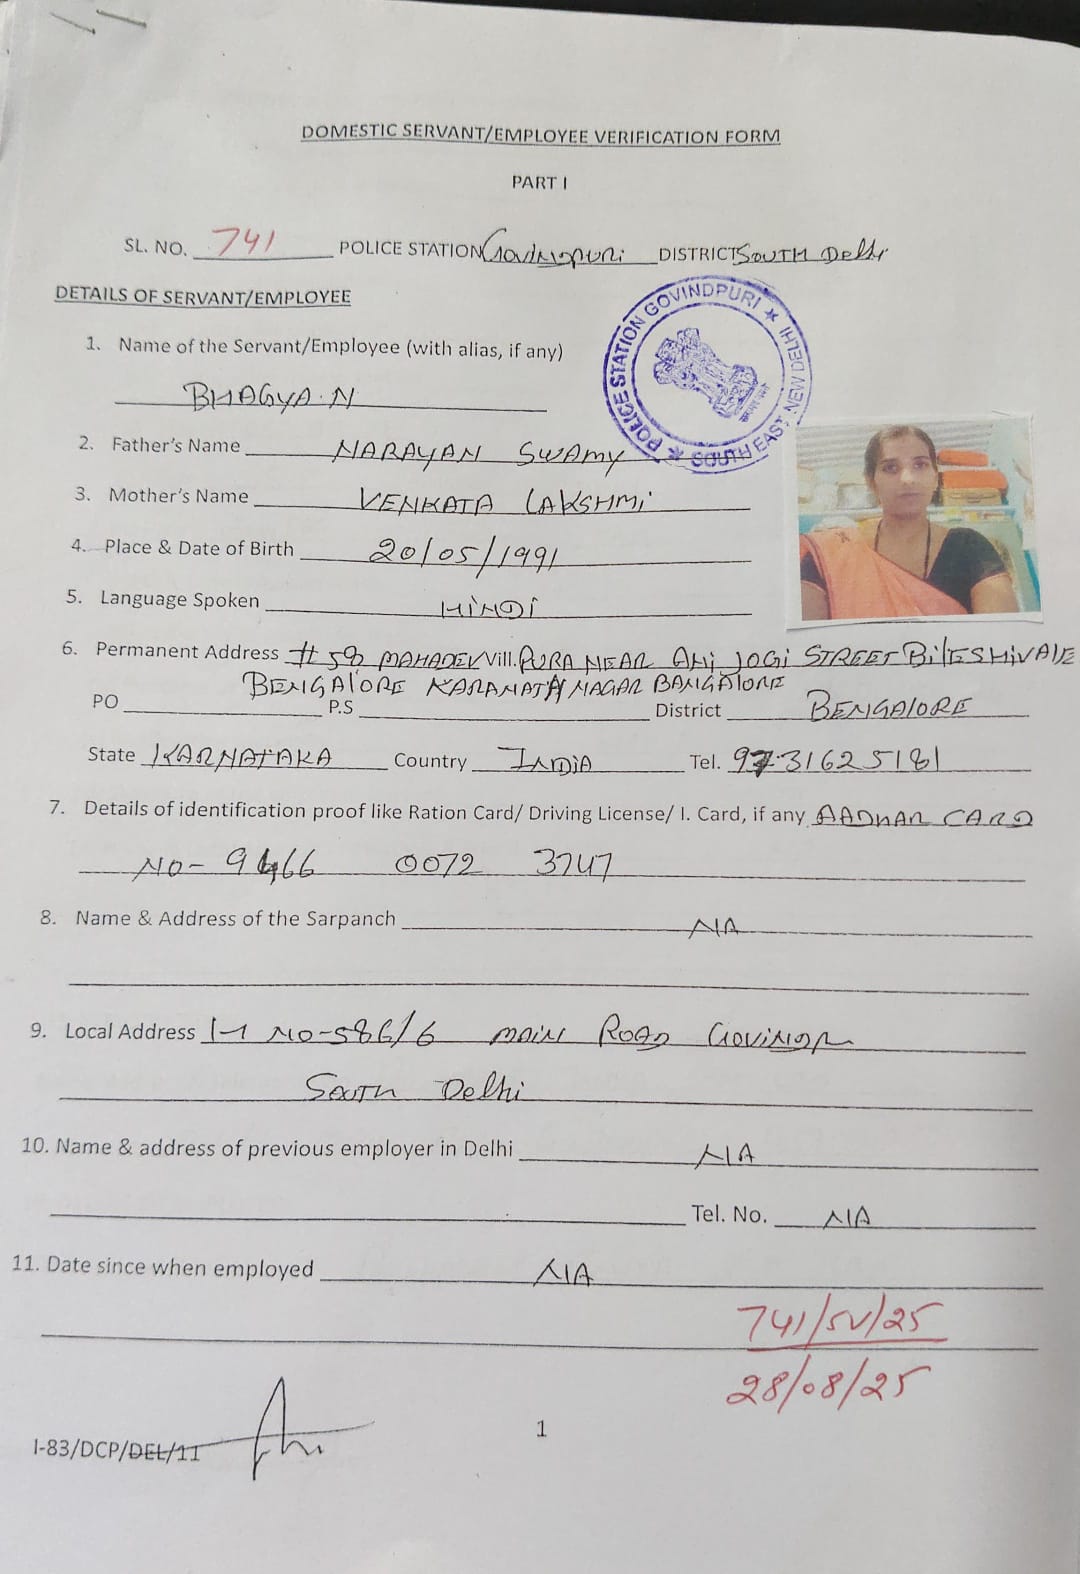 DOMESTIC SERVANT/EMPLOYEE VERIFICATION FORM
PART I
SL. NO. 741 POLICE STATION Govindpuri DISTRICT SOUTH Delhi
DETAILS OF SERVANT/EMPLOYEE
POLICE STATION GOVINDPURI ★ SOUTH EAST NEW DELHI ★
1. Name of the Servant/Employee (with alias, if any)
BHAGYA. N
2. Father's Name NARAYAN SWAMY
3. Mother's Name VENKATA LAKSHMI
4. Place & Date of Birth 20/05/1991
5. Language Spoken HINDI
6. Permanent Address # 58 MAHADEV Vill. PURA NEAR JOGI STREET BilESHIVALE
BENGALORE NAGAR BANGALORE
PO P.S District BENGALORE
State KARNATAKA Country INDIA Tel. 9731625181
7. Details of identification proof like Ration Card/ Driving License/ I. Card, if any AADHAR CARD
NO- 9466 0072 3747
8. Name & Address of the Sarpanch NA
9. Local Address H NO-586/6 MAIN ROAD
SOUTH Delhi
10. Name & address of previous employer in Delhi NA
Tel. No. NA
11. Date since when employed NA
741/SV/25
28/08/25
1
I-83/DCP/DEL/11